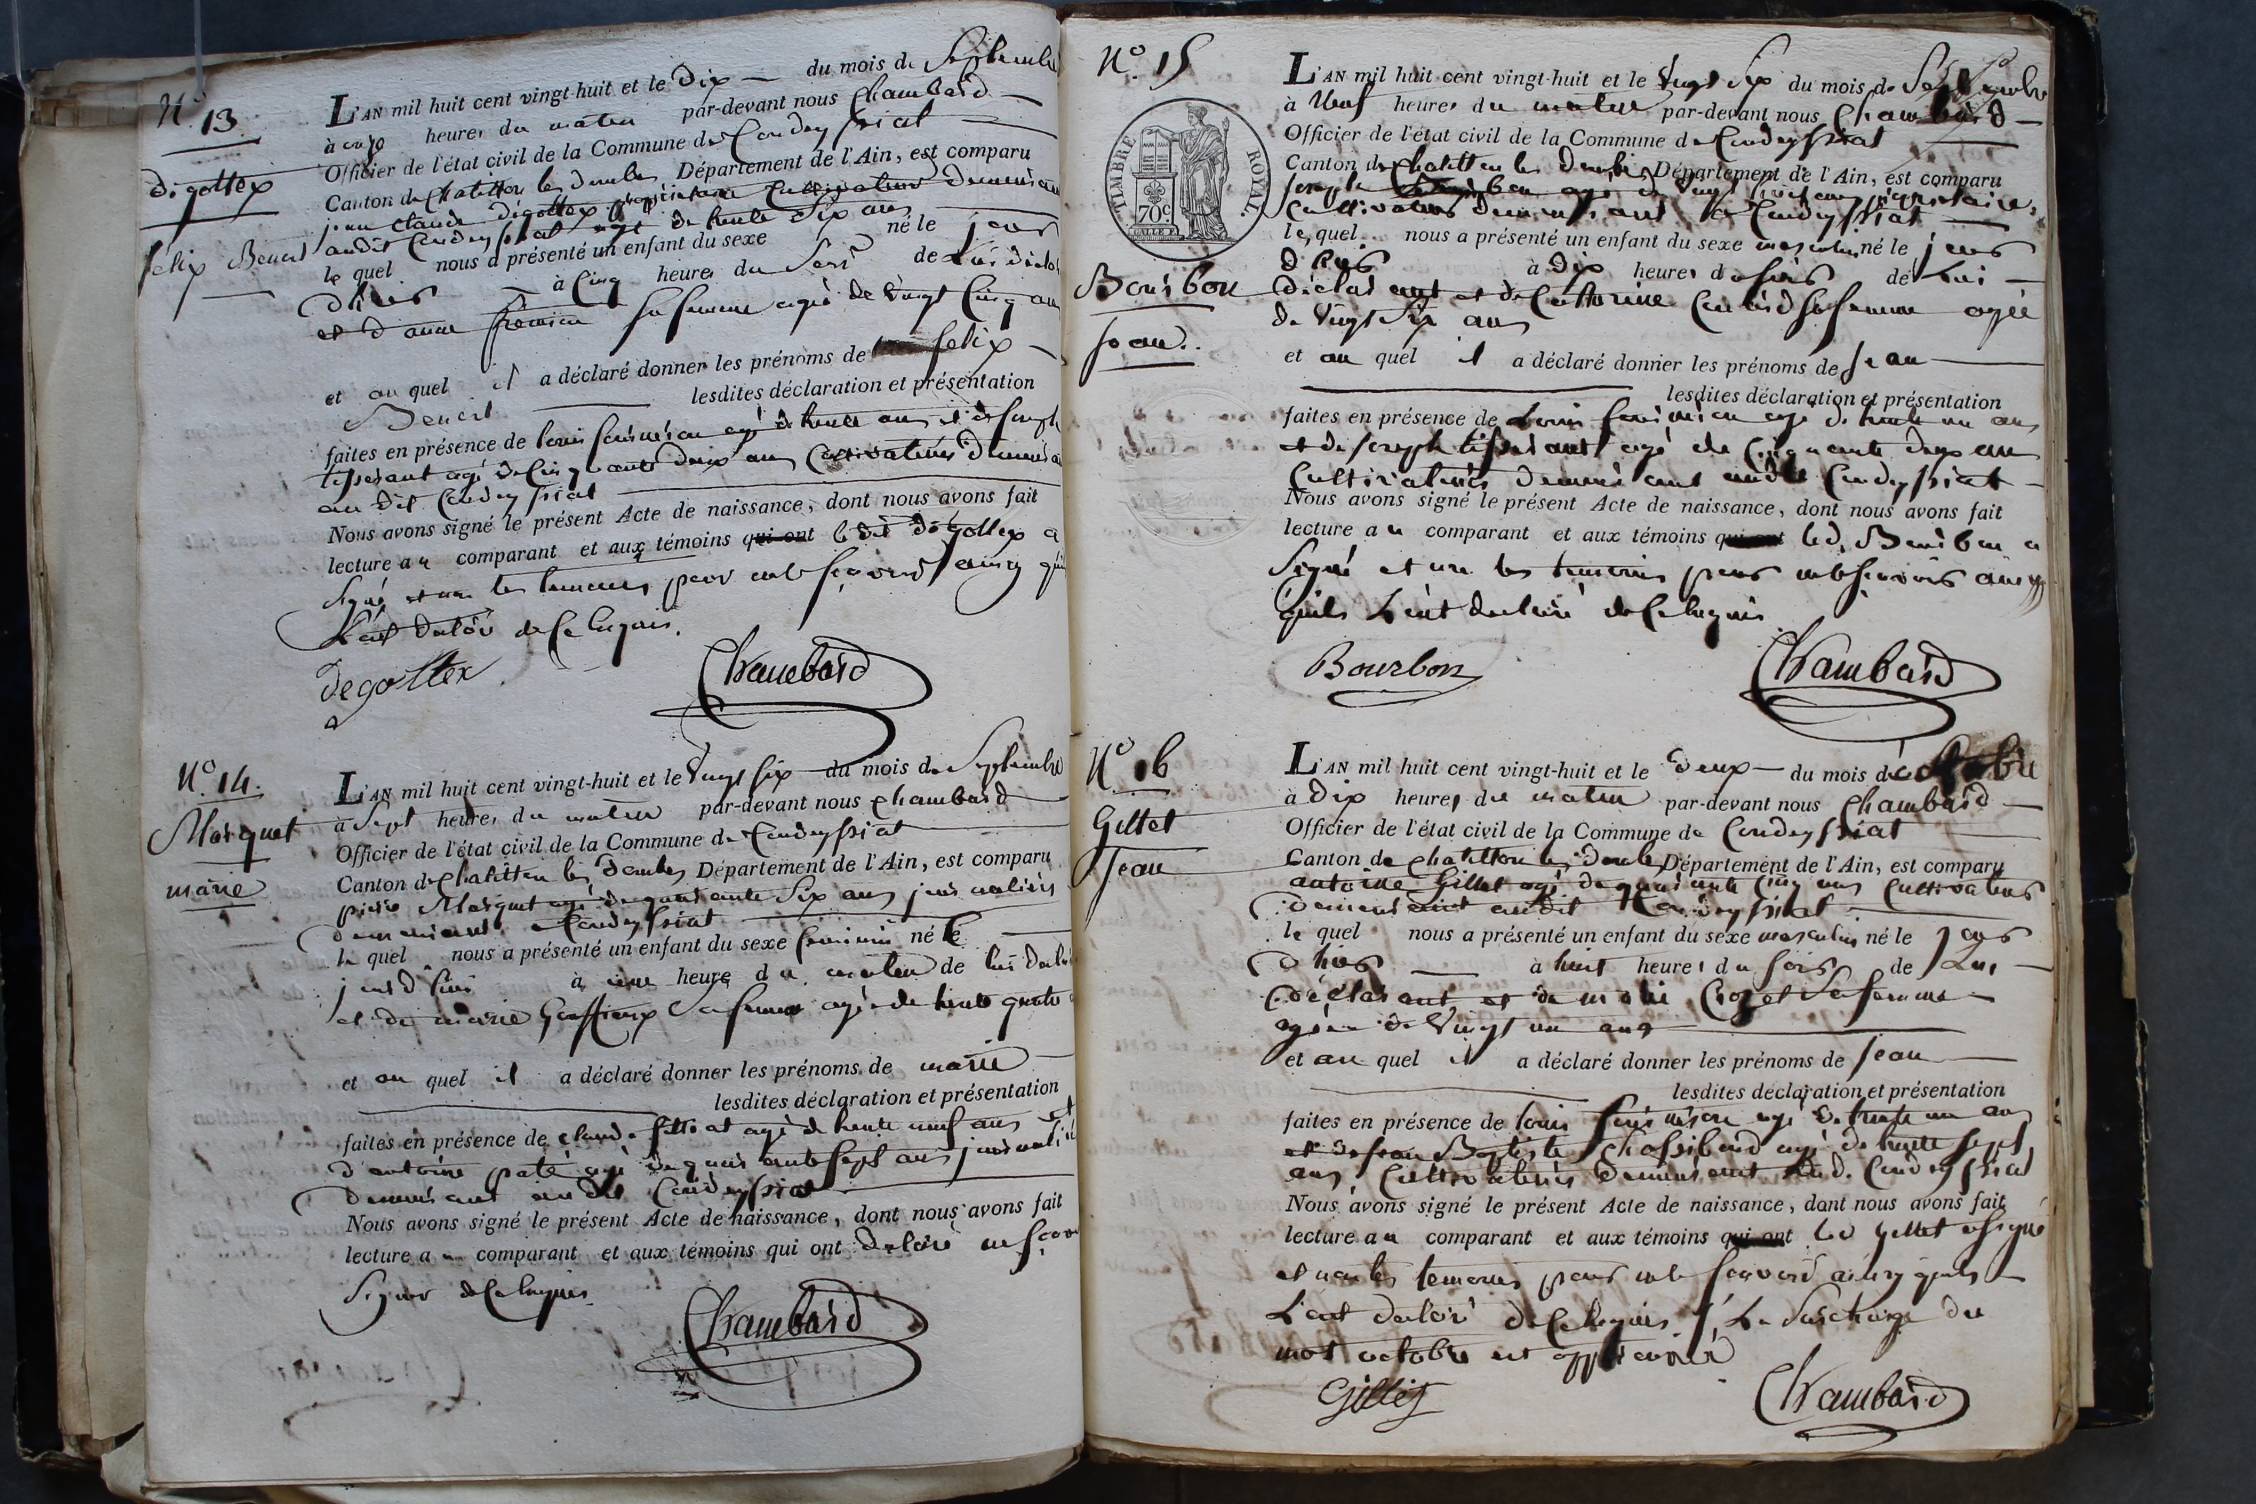 N° 13
digottex
félix Benoit
L'AN mil huit cent vingt-huit et le Dix — du mois de Septembre
à onze heures du matin par-devant nous Chambard
Officier de l'état civil de la Commune de Condeyssiat
Canton de Chatillon les Dombes Département de l'Ain, est comparu
jean Claude Digottex propriétaire Cultivateur demeurant
audit Condeyssiat agé de trente Six ans
le quel nous a présenté un enfant du sexe né le jour
d'hier à Cinq heures du Soir de lui déclarant
et d'anne sa femme agée de vingt Cinq ans
et au quel il a déclaré donner les prénoms de felix
Benoit lesdites déclaration et présentation
faites en présence de louis agé de trente ans et de joseph
tisserant agé de Cinquante deux ans Cultivateurs demeurant
au dit Condeyssiat
Nous avons signé le présent Acte de naissance, dont nous avons fait
lecture au comparant et aux témoins qui ont le dit digottex a
Signé et non les temoins pour ne le sçavoir ainsy qu'ils
L'ont déclaré de Ce Enquis.
degottex
Chambard
N° 14.
Marquet
marie
L'AN mil huit cent vingt-huit et le Vingt six du mois de Septembre
à Sept heures du matin par-devant nous Chambard
Officier de l'état civil de la Commune de Condeyssiat
Canton de Chatillon les Dombes Département de l'Ain, est comparu
pierre Marquet agé de quarante Six ans journaliers
demeurant à Condeyssiat
le quel nous a présenté un enfant du sexe feminin né le
jour d'hier à une heure du matin de lui déclarant
et de marie sa femme agée de trente quatre
et au quel il a déclaré donner les prénoms de marie
lesdites déclaration et présentation
faites en présence de claude agé de trente neuf ans et
d'antoine paté agé de quarante sept ans journaliers
demeurant au dit Condeyssiat
Nous avons signé le présent Acte de naissance, dont nous avons fait
lecture au comparant et aux témoins qui ont déclaré ne sçavoir
Signer de Ce Enquis
Chambard
N° 15
TIMBRE ROYAL.
70c
Bourbon
Jean.
L'AN mil huit cent vingt-huit et le Vingt Six du mois de Septembre
à Neuf heures du matin par-devant nous Chambard
Officier de l'état civil de la Commune de Condeyssiat
Canton de Chatillon les Dombes Département de l'Ain, est comparu
joseph Bourbon agé de vingt huit ans propriétaire
Cultivateur demeurant à Condeyssiat
le quel nous a présenté un enfant du sexe masculin né le jour
d'hier à dix heures du soir de lui
déclarant et de Catherine sa femme agée
de vingt Six ans
et au quel il a déclaré donner les prénoms de Jean
lesdites déclaration et présentation
faites en présence de Louis agé de trente un ans
et de joseph tisserant agé de Cinquante deux ans
Cultivateurs demeurant audit Condeyssiat
Nous avons signé le présent Acte de naissance, dont nous avons fait
lecture au comparant et aux témoins qui ont led. Bourbon a
Signé et non les temoins pour ne le sçavoir ainsy
qu'ils L'ont déclaré de Ce Enquis
Bourbon
Chambard
N° 16
Gillet
Jean
L'AN mil huit cent vingt-huit et le deux — du mois d'octobre
à Dix heures du matin par-devant nous Chambard
Officier de l'état civil de la Commune de Condeyssiat
Canton de Chatillon les Dombes Département de l'Ain, est comparu
antoine Gillet agé de quarante Cinq ans Cultivateur
demeurant audit Condeyssiat
le quel nous a présenté un enfant du sexe masculin né le jour
d'hier à huit heures du soir de Lui
déclarant et de marie Crozet Sa femme
agée de Vingt un ans
et au quel il a déclaré donner les prénoms de Jean
lesdites déclaration et présentation
faites en présence de louis agé de trente un ans
et de jean Baptiste agé de trente sept
ans Cultivateurs demeurant aud. Condeyssiat
Nous avons signé le présent Acte de naissance, dont nous avons fait
lecture au comparant et aux témoins qui ont led Gillet a signé
et non les temoins pour ne le sçavoir ainsy qu'ils
L'ont déclaré de Ce Enquis. La Surcharge du
mot octobre est approuvée
Gillet
Chambard